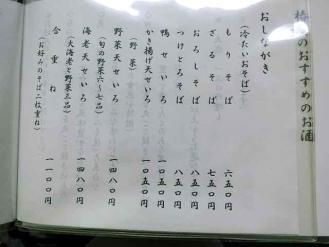 のおすすめのお酒
おしながき
(冷たいおそば)
もりそば 六五〇円
ざるそば 七五〇円
おろしそば 八五〇円
つけとろそば 八五〇円
鴨せいろ 一〇五〇円
かき揚げ天せいろ 一〇五〇円
(野菜)
野菜天せいろ 一四八〇円
(旬の野菜六〜七品)
海老天せいろ 一四八〇円
(大海老と野菜三品)
合重ね 一一〇〇円
(お好みのそば二枚重ね)